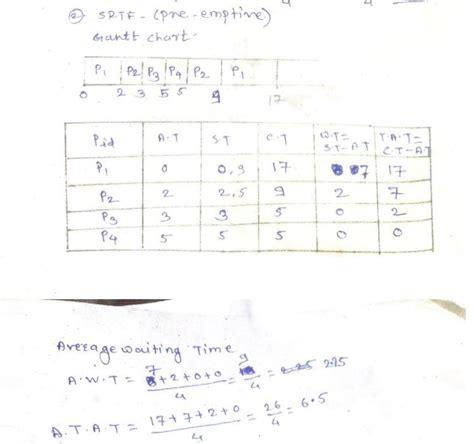 ② SRTF - (pre-emptive)
Gantt chart-
P1 P2 P3 P4 P2 P1
0 2 3 5 5 9 17
Pid A.T S.T C.T W.T= S.T-A.T T.A.T= C.T-A.T
P1 0 0,9 17 7 17
P2 2 2,5 9 2 7
P3 3 3 5 0 2
P4 5 5 5 0 0
Avereage waiting Time
A.W.T = 7+2+0+0/4 = 9/4 = 2.25
A.T.A.T = 17+7+2+0/4 = 26/4 = 6.5